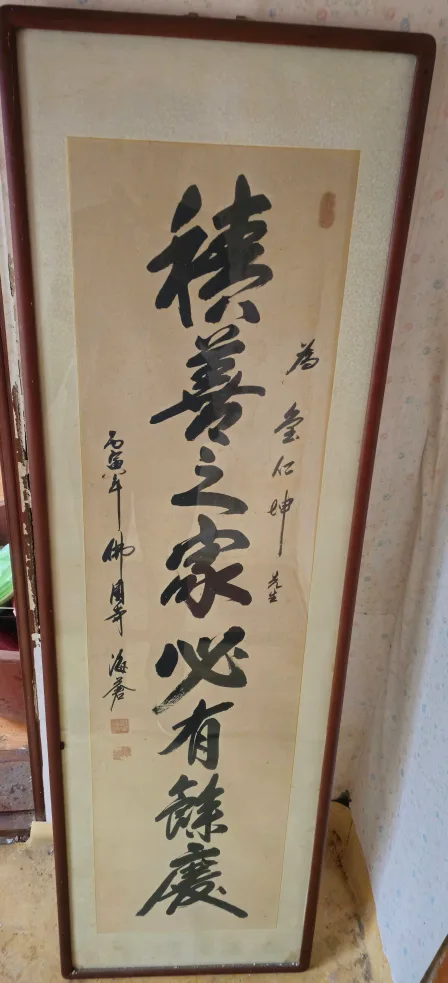 為 金仁坤 先生
積善之家必有餘慶
丙寅年 佛國寺 海蒼